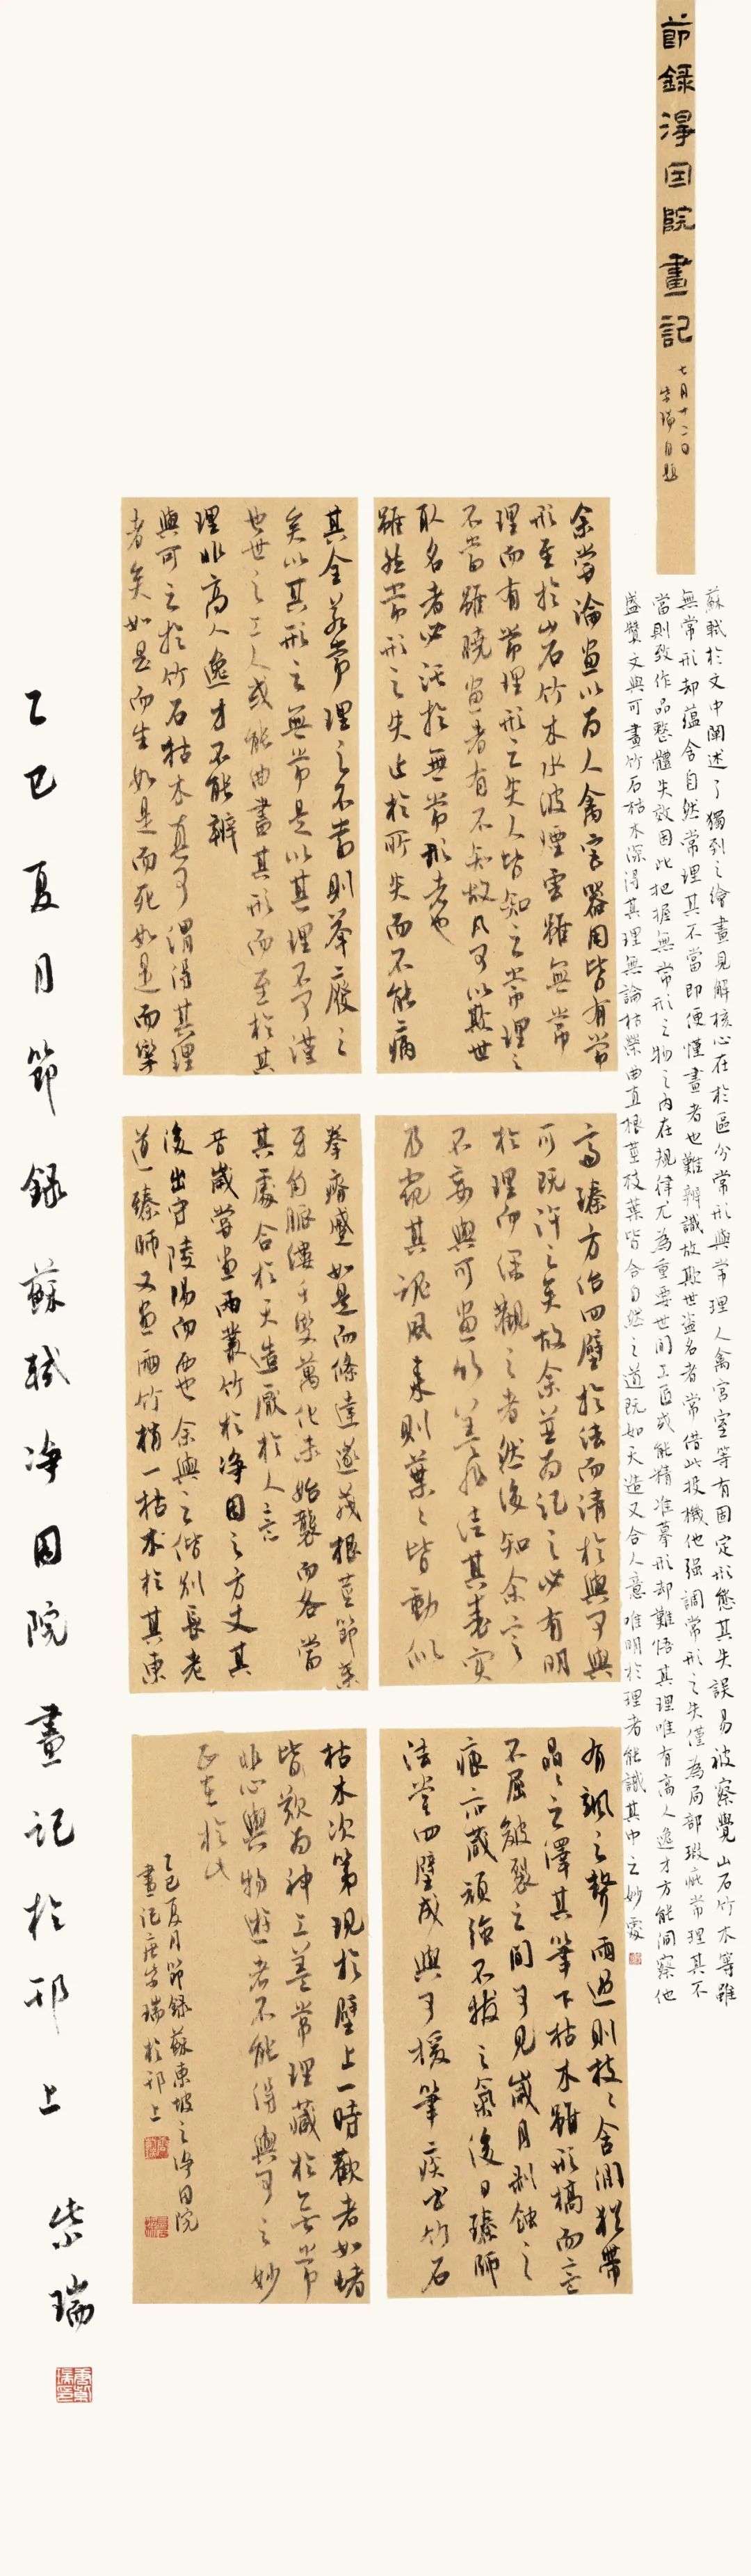 節録淨因院畫記
七月十二日
紫瑞自題
蘇軾於文中闡述了獨到之繪畫見解核心在於區分常形與常理人禽宮室等有固定形態其失誤易被察覺山石竹木等雖
無常形却蘊含自然常理其不當即便懂畫者也難辨識故欺世盜名者常借此投機他強調常形之失僅為局部瑕疵常理其不
當則致作品整體失敗因此把握無常形之物之內在規律尤為重要世間工匠或能精准摹形却難悟其理唯有高人逸才方能洞察他
盛贊文與可畫竹石枯木深得其理無論枯榮曲直根莖枝葉皆合自然之道既如天造又合人意唯明於理者能識其中之妙處
余嘗論畫以為人禽宮器用皆有常
形至於山石竹木水波煙雲雖無常
理而有常理形之失人皆知之常理之
不當雖曉畫者有不知故凡可以欺世
取名者必託於無常形者也
雖然常形之失止於所失而不能病
其全若常理之不當則舉廢之
矣以其形之無常是以其理不可謹
也世之工人或能曲盡其形而至於其
理非高人逸才不能辨
與可之於竹石枯木真可謂得其理
者矣如是而生如是而死如是而攣
拳瘠蹙如是而條達遂茂根莖節葉
牙角脈縷千變萬化未始襲而各當
其處合於天造厭於人意
昔歲嘗畫兩叢竹於淨因之方丈其
後出守陵陽而西也余與之偕別長老
道臻師又畫兩竹梢一枯木於其東
齋臻方治四壁於法而請於與可與
可既許之矣故余並為記之必有明
於理而深觀之者然後知余言
不妄與可畫竹蓋非法其表實
乃究其魂風來則葉葉皆動似
有颯之聲雨過則枝枝含潤猶帶
晶晶之澤其筆下枯木雖形槁而意
不屈皴裂之間可見歲月剝蝕之
痕亦藏頑強不拔之氣後日臻師
法堂四壁成與可援筆疾書竹石
枯木次第現於壁上一時觀者如堵
皆歎為神工蓋常理藏於無常
非心與物遊者不能得與可之妙
正在於此
乙巳夏月節録蘇東坡之淨因院
畫記唐紫瑞於邗上
乙巳夏月節録蘇軾淨因院畫記於邗上
紫瑞